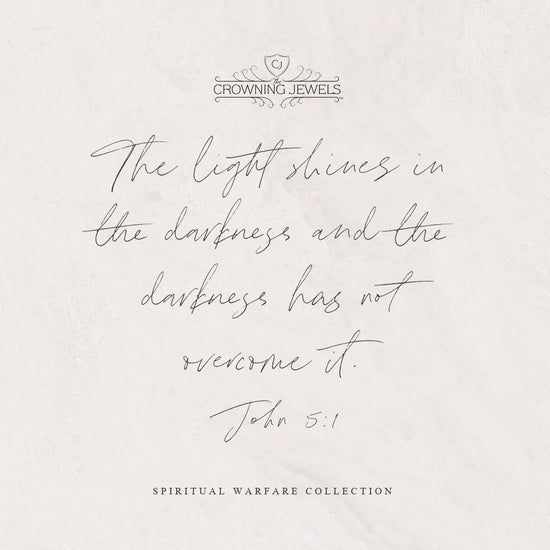 CJ
the
CROWNING JEWELS
The light shines in
the darkness and the
darkness has not
overcome it.
John 5:1
SPIRITUAL WARFARE COLLECTION